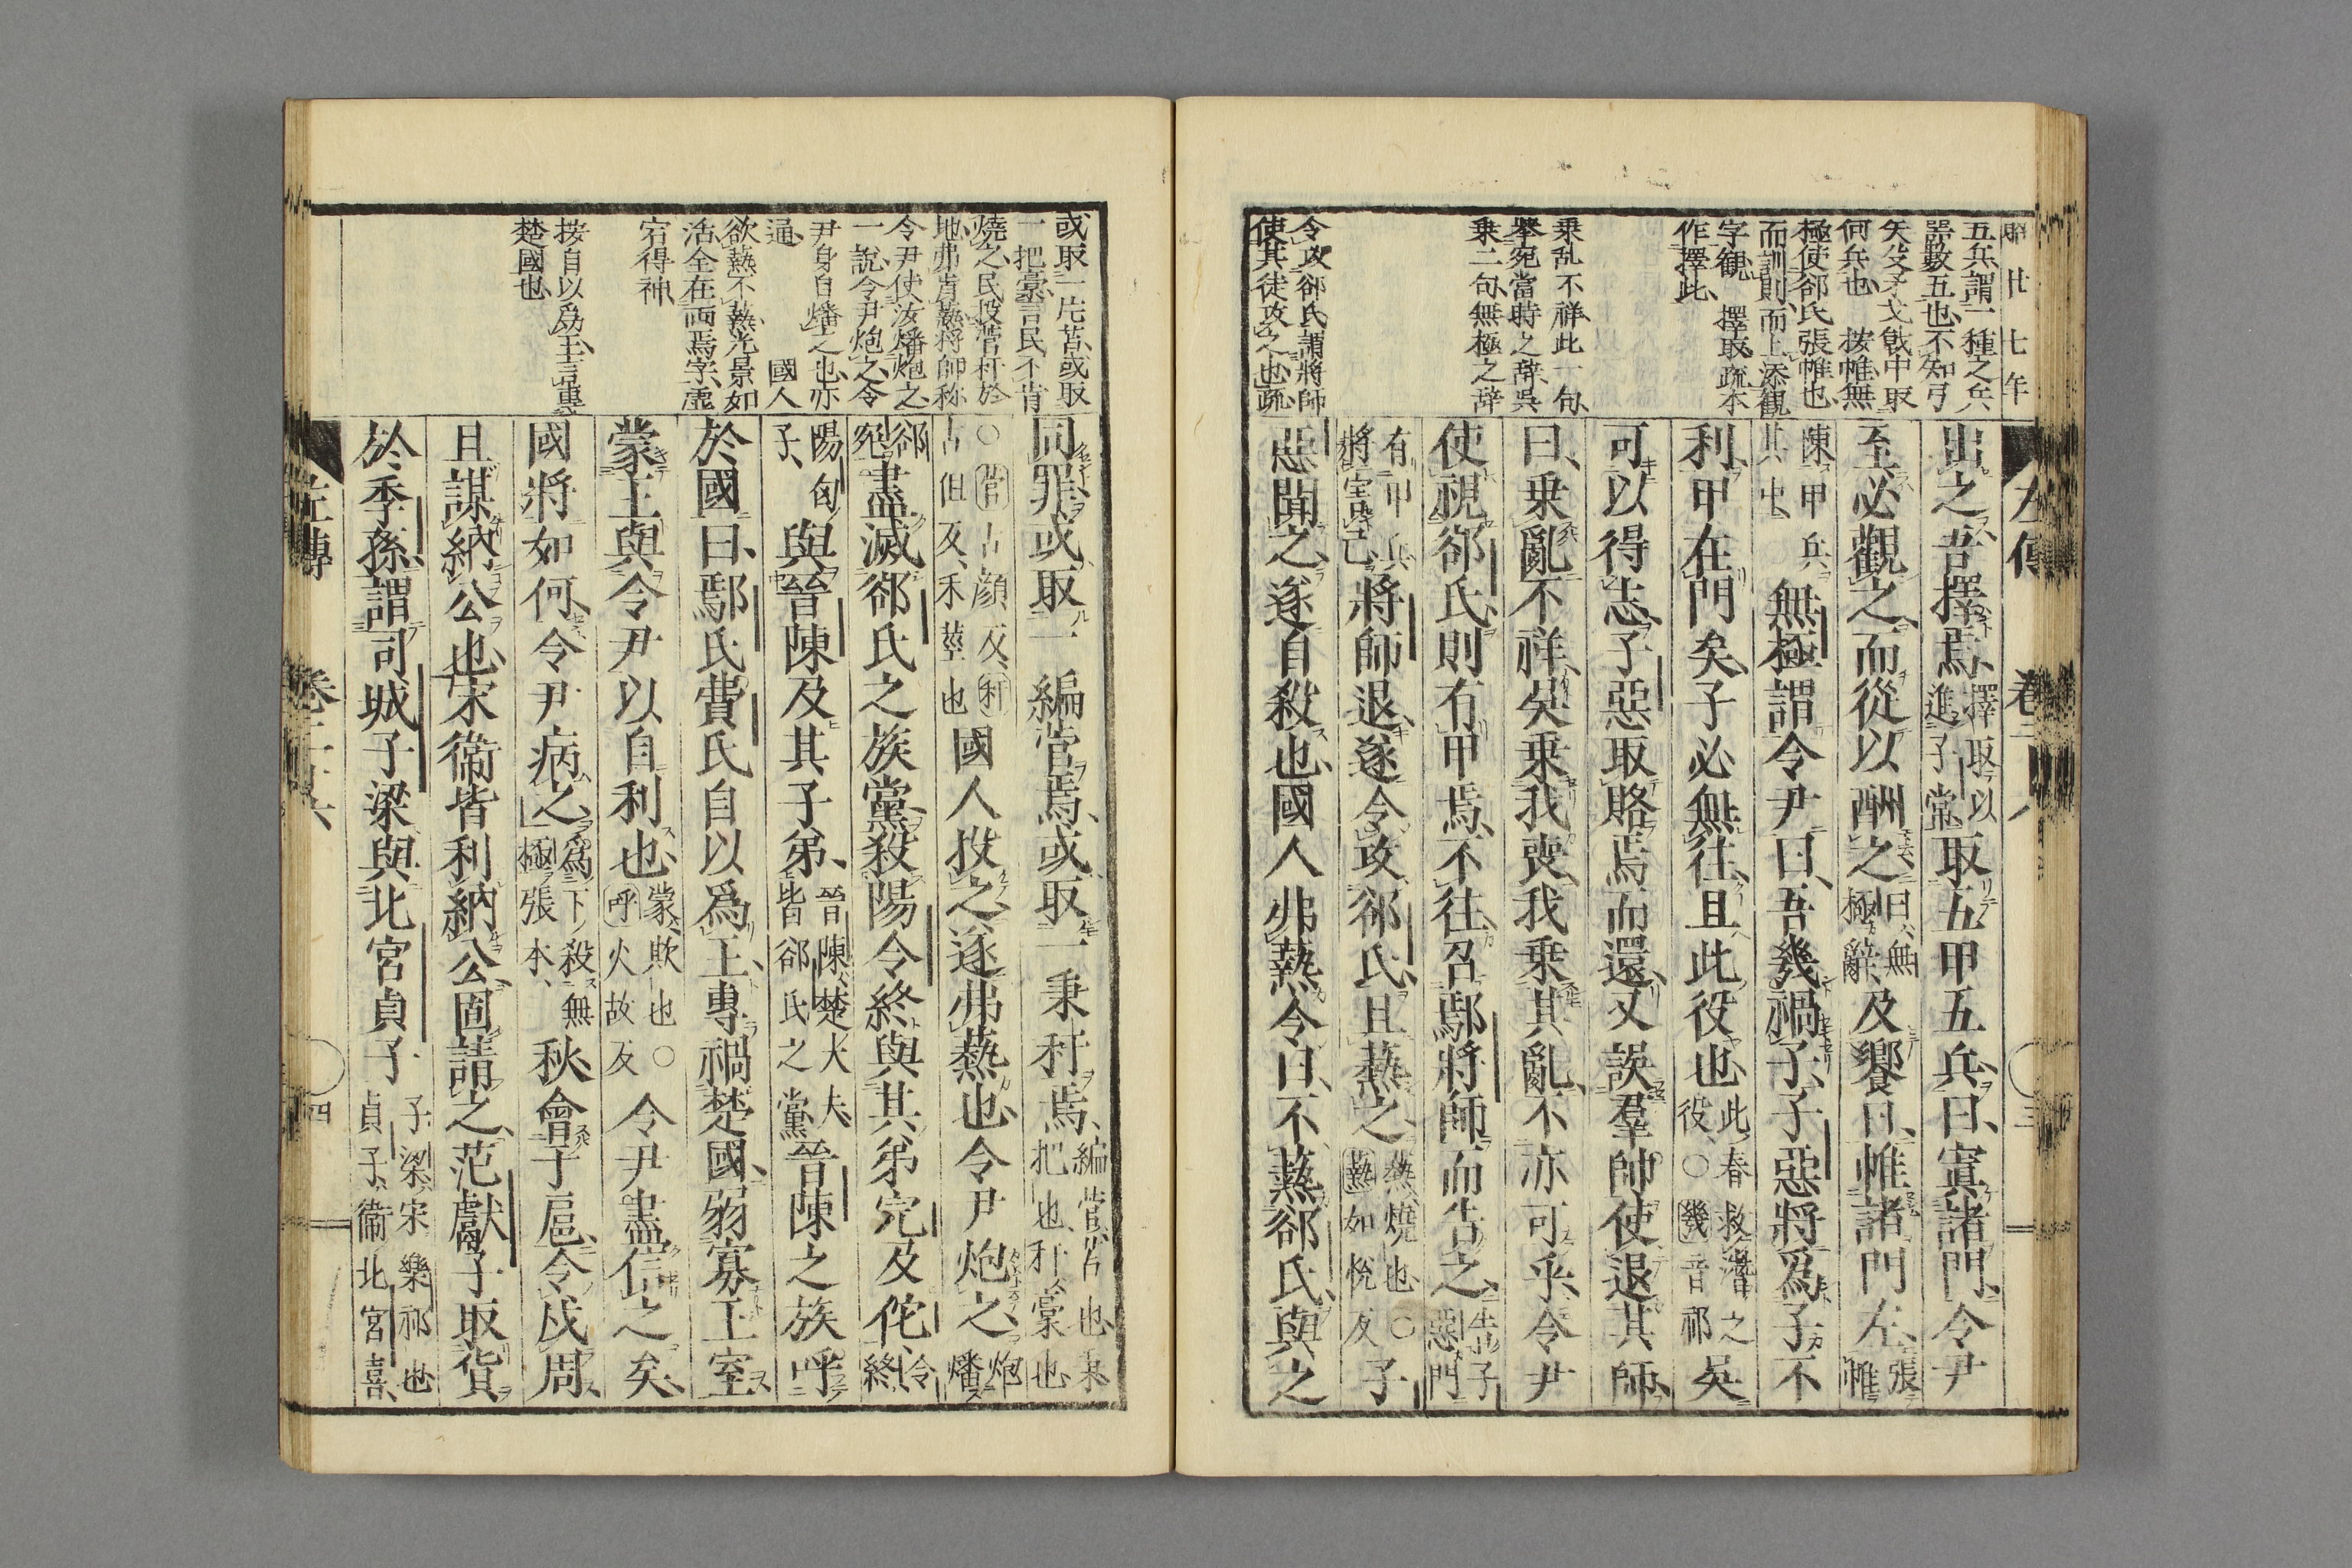 昭廿七年
五兵謂一種之兵
器数五也不知弓
矢殳矛戈戟中取
何兵也 按帷無
極使郤氏張帷也
而訓則而上添観
字観 擇取疏本
作擇此
乗乱不祥此一句
挙宛當時之辞呉
乗二句無極之辞
令攻郤氏謂將師
使其徒攻之也疏
左傳
三
出之吾擇焉擇取以進子常取五甲五兵曰寘諸門令尹
至必觀之而從以酬之曰無極辭及饗日帷諸門左張帷
陳甲兵其中無極謂令尹曰吾幾禍子子惡將爲子不
利甲在門矣子必無往且此役也此春救潛之役○幾音祁吳
可以得志子惡取賂焉而還又誤羣帥使退其師
曰乘亂不祥吳乘我喪我乘其亂不亦可乎令尹
使視郤氏則有甲焉不往召鄢將師而告之告子惡門
有甲兵將害己將師退遂令攻郤氏且爇之爇燒也○爇如悅反子
惡聞之遂自殺也國人弗爇令曰不爇郤氏與之
或取一片苫或取
一把藁言民不肯
燒之民投菅秆於
地弗肯爇將師称
令尹使汝燔炮之
一説令尹炮之令
尹身自燔之也亦
通 國人
欲爇不爇光景如
活全在両焉字虚
宕得神
按自以爲王言專
楚國也
同罪或取一編菅焉或取一秉秆焉編菅苫也秉把也秆藁也
○菅古顔反秆古但反禾莖也國人投之遂弗爇也令尹炮之炮燔
郤宛盡滅郤氏之族黨殺陽令終與其弟完及佗令終
陽匄子與晉陳及其子弟晉陳楚大夫皆郤氏之黨晉陳之族呼
於國曰鄢氏費氏自以爲王專禍楚國弱寡王室
蒙王與令尹以自利也蒙欺也○呼火故反令尹盡信之矣
國將如何令尹病之爲下殺無極張本秋會于扈令戍周
且謀納公也宋衞皆利納公固請之范獻子取貨
於季孫謂司城子梁與北宮貞子子梁宋樂祁也貞子衞北宮喜
左傳
四